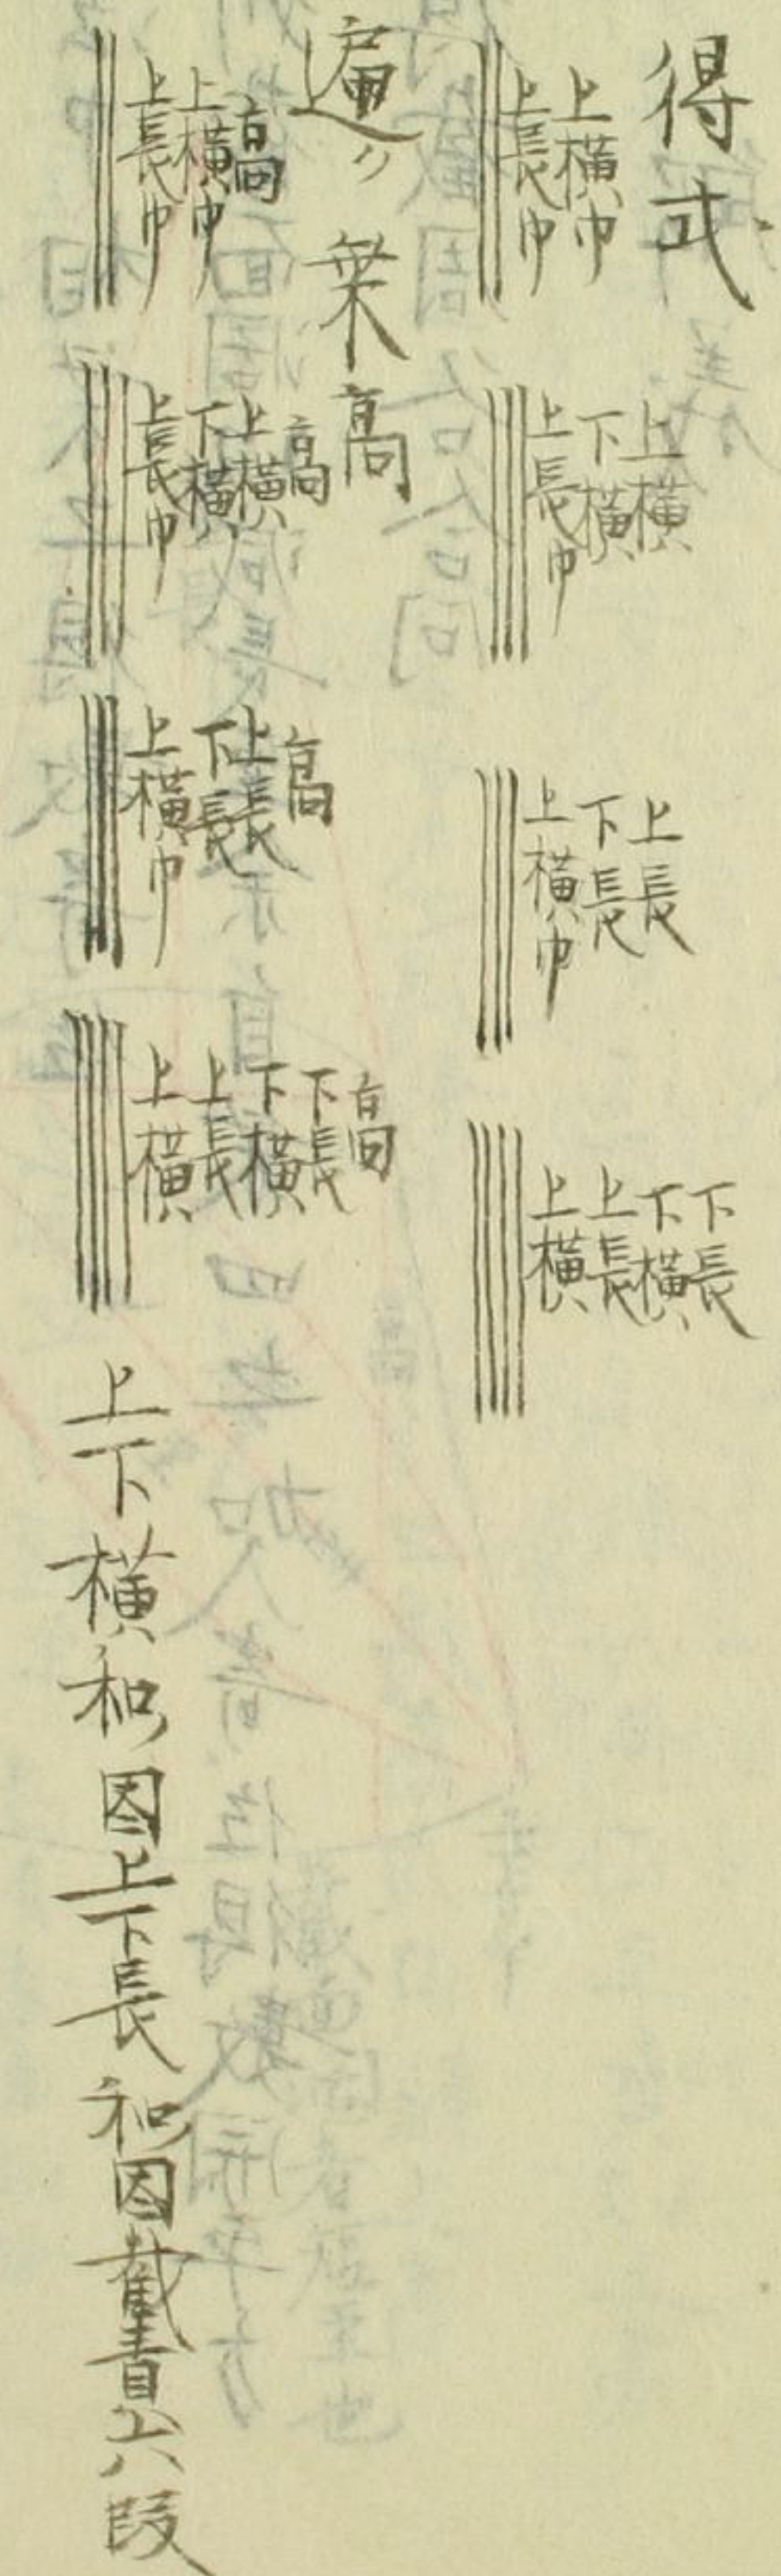 得式
上横巾
上長巾
上横
下横
上長巾
上長
下長
上横巾
下長
下横
上長
上横
遍ク乗高
高
上横巾
上長巾
高
上横
下横
上長巾
高
上長
下長
上横巾
高
下長
下横
上長
上横
上下横和因上下長和因截責六段